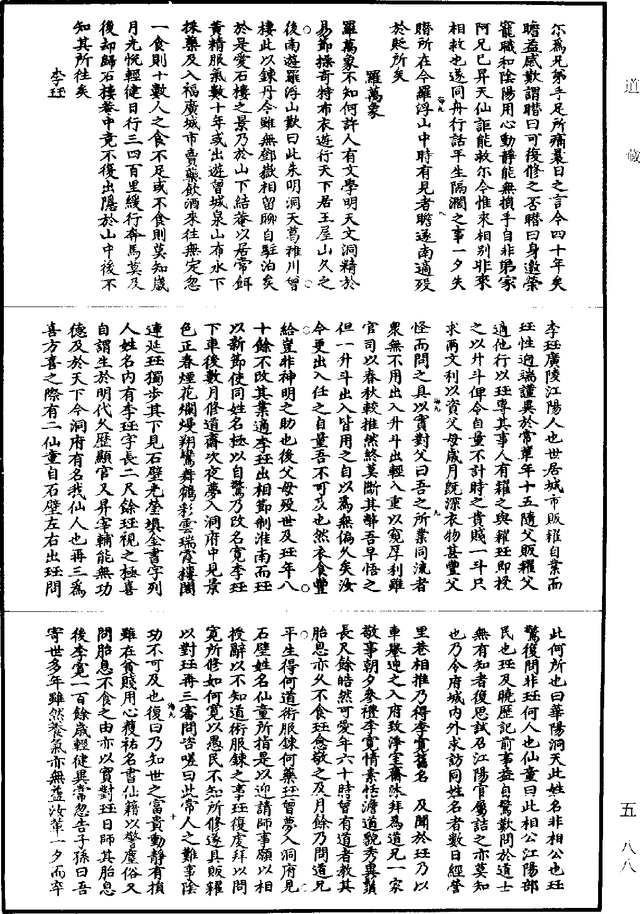 尔為兄弟手足所痛曩日之言今四十年矣
瞻益感歎謂𥌓曰可復修之否𥌓曰身邀榮
寵職和陰陽用心動靜能無損乎自非弟家
阿兄已昇天仙詎能救尔今惟來相別非來
相救也遂同舟行話平生隔濶之事一夕失
𥌓所在今羅浮山中時有見者瞻遂南適殁
於貶所矣
羅萬象
羅萬象不知何許人有文學明天文洞精於
易節操奇特布衣遊行天下居王屋山久之
後南遊羅浮山歎曰此朱明洞天葛稚川曾
棲此以鍊丹今雖無鄧嶽相留聊自駐泊矣
於是愛石樓之景乃於山下結菴以居常餌
黃精服氣數十年或出遊曾城泉山布水下
採藥及入福廣城市賣藥飲酒來往無定忽
一食則十數人之食不足或不食則莫知歲
月光悅輕健日行三四百里緩行奔馬莫及
後却歸石樓菴中竟不復出隱於山中後不
知其所往矣
李珏
李珏廣陵江陽人也世居城市販糴自業而
珏性迥端謹異於常輩年十五隨父販糴父
適他行以珏專其事人有糴之與糶珏即授
之以升斗俾令自量不計時之貴賤一斗只
求兩文利以資父母歲月既深衣物甚豐父
怪而問之具以實對父曰吾之所業同流者
衆無不用出入升斗出輕入重以寬厚利雖
官司以春秋較推然終莫斷其弊吾早悟之
但一升斗出入皆用之自以為無偏久矣汝
今更出入任之自量吾不可及也然衣食豐
給豈非神明之助也後父母殁世及珏年八
十餘不改其業適李珏出相節制淮南而珏
以新節使同姓名極以自驚乃改名寬李珏
下車後數月修道齋次夜夢入洞府中見景
色正春煙花爛熳翔鸞舞鶴彩雲瑞霞樓閣
連延珏獨步其下見石壁光瑩填金書字列
人姓名內有李珏字長二尺餘珏視之極喜
自謂生於明代久歷顯官又昇宰輔能無功
德及於天下今洞府有名我仙人也再三為
喜方喜之際有二仙童自石壁左右出珏問
此何所也曰華陽洞天此姓名非相公也珏
驚復問非珏何人也仙童曰此相公江陽部
民也珏及曉歷記前事益自驚歎問於道士
無有知者復思試召江陽官屬詰之亦莫知
也乃令府城內外求訪同姓名者數日經營
里巷相推乃得李寬舊名 及聞於珏乃以
車轝迎之入府致淨室齋沐拜為道兄一家
敬事朝夕參禮李寬情素恬澹道貌秀異鬚
長尺餘皓然可愛年六十時曾有道者教其
胎息亦久不食珏愈敬之及月餘乃問道兄
平生得何道術服鍊何藥珏曾夢入洞府見
石壁姓名仙童所指是以迎請師事願以相
授辭以不知道術服鍊之事珏復虔拜以問
寬所修如何寬以愚民不知所修遂具販糴
以對珏再三審問咨嗟曰此常人之難事陰
功不可及也復曰乃知世之富貴動靜有損
雖在貧賤用心獲祐名書仙籍以警塵俗又
問胎息不食之由亦以實對珏日師其胎息
後李寬一百餘歲輕健異常忽告子孫曰吾
寄世多年雖然養氣亦無益汝輩一夕而卒
道藏
五 八八